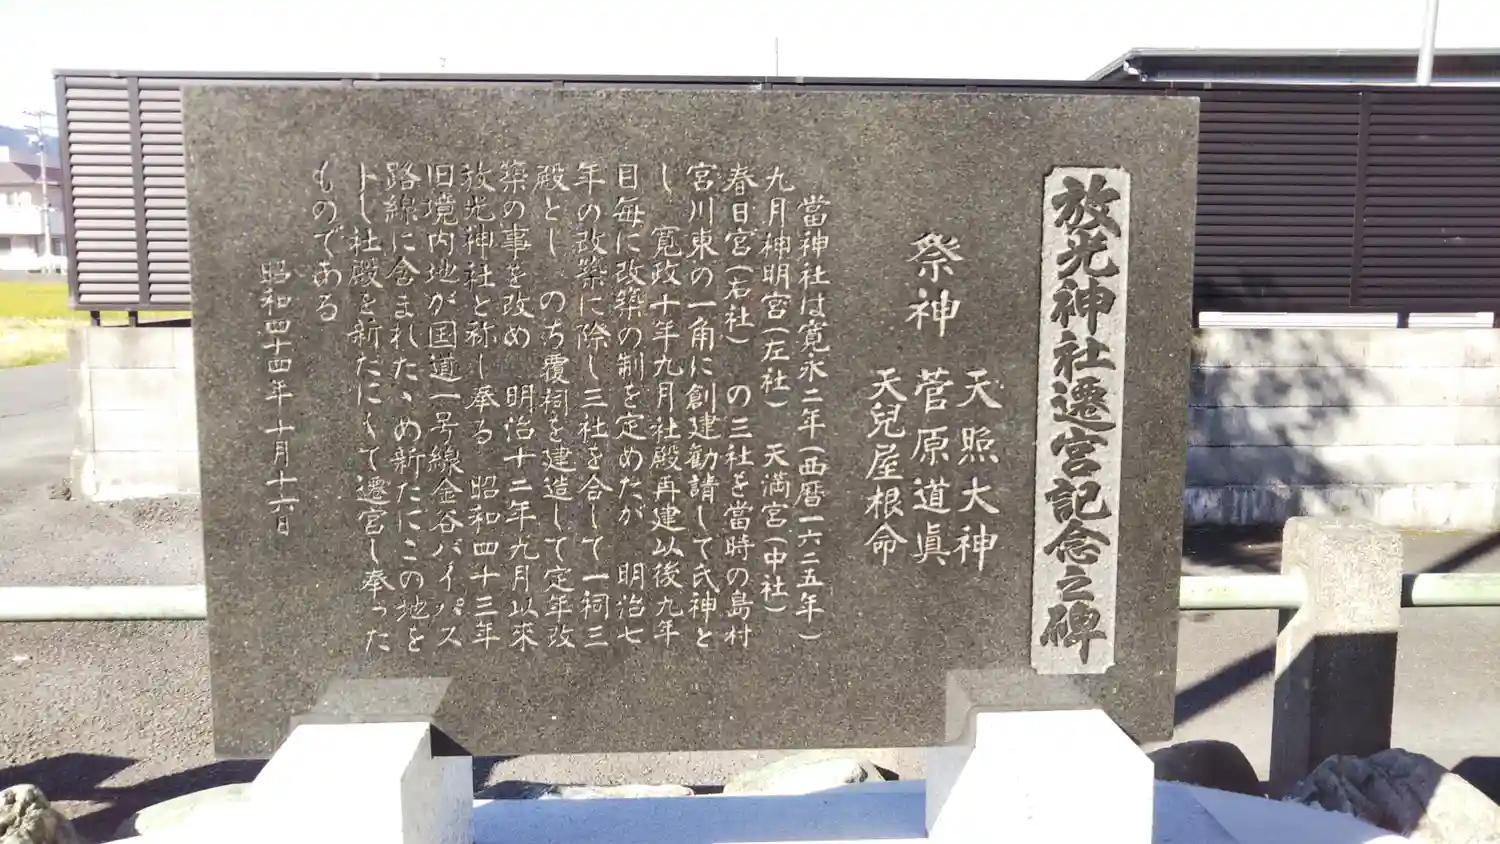 放光神社遷宮記念之碑
祭神
天照大神
菅原道眞
天兒屋根命
當神社は寛永二年(西暦一六二五年)
九月神明宮(左社) 天満宮(中社)
春日宮(右社) の三社を當時の島村
宮川東の一角に創建勧請して氏神と
し 寛政十年九月社殿再建以後九年
目毎に改築の制を定めたが 明治七
年の改築に際し三社を合して一祠三
殿とし のち覆祠を建造して定年改
築の事を改め 明治十二年九月以來
放光神社と称し奉る 昭和四十三年
旧境内地が国道一号線金谷バイパス
路線に含まれたゝめ新たにこの地を
トし社殿を新たにして遷宮し奉った
ものである
昭和四十四年十月十六日